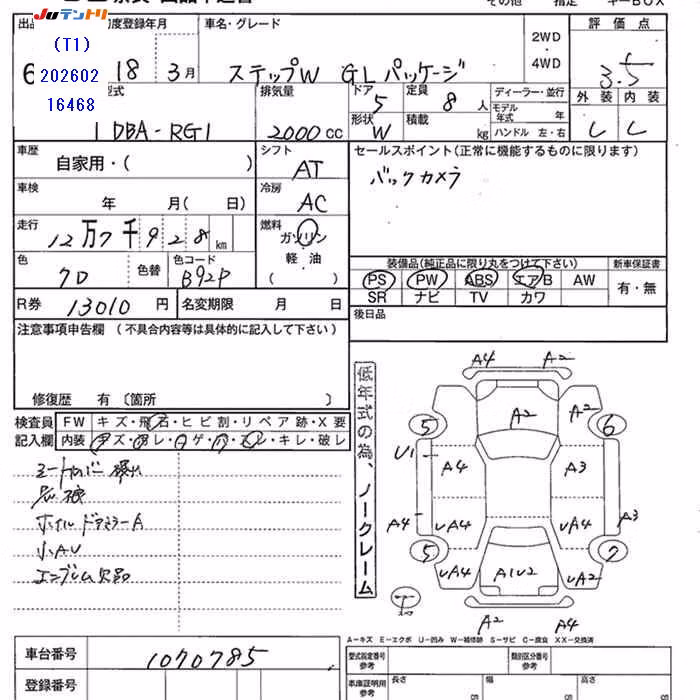 Juテントリ
(T1)
202602
16468
出品
初度登録年月
車名・グレード
その他
指定
キーBOX
18年 3月
ステップW GLパッケージ
2WD
・
4WD
評価点
3.5
外装 内装
型式
DBA-RG1
排気量
2000cc
ドア 5
形状 W
定員 8人
積載 kg
ディーラー・並行
モデル年式 年
ハンドル 左・右
車歴
自家用・( )
シフト
AT
セールスポイント(正常に機能するものに限ります)
バックカメラ
車検
年 月( 日)
冷房
AC
走行
12万7千928km
燃料
ガソリン
軽油
( )
色
色替
色コード
B92P
装備品(純正品に限り丸をつけて下さい)
新車保証書
PS PW ABS エアB AW
SR ナビ TV カワ
有・無
R券 13010円
名変期限 月 日
後日品
注意事項申告欄 (不具合内容等は具体的に記入して下さい)
修復歴 有 〔箇所 〕
検査員記入欄
FW キズ・飛石・ヒビ割・リペア跡・X要
内装 キズ・ヨレ・コゲ・穴・スレ・キレ・破レ
ホイル ドアミラーA
小AU
エンブレム欠品
低年式の為、ノークレーム
A4 A2
5 A2 A2 6
U1 A4 A3
A4 UA4 UA4 A3
5 UA4 A1U2 UA2 7
A2 A4
A-キズ E-エクボ U-凹み W-補修跡 S-サビ C-腐食 XX-交換済
車台番号 1070785
登録番号
型式指定番号 参考
類別区分番号 参考
車庫証明用 参考
長さ 幅 高さ